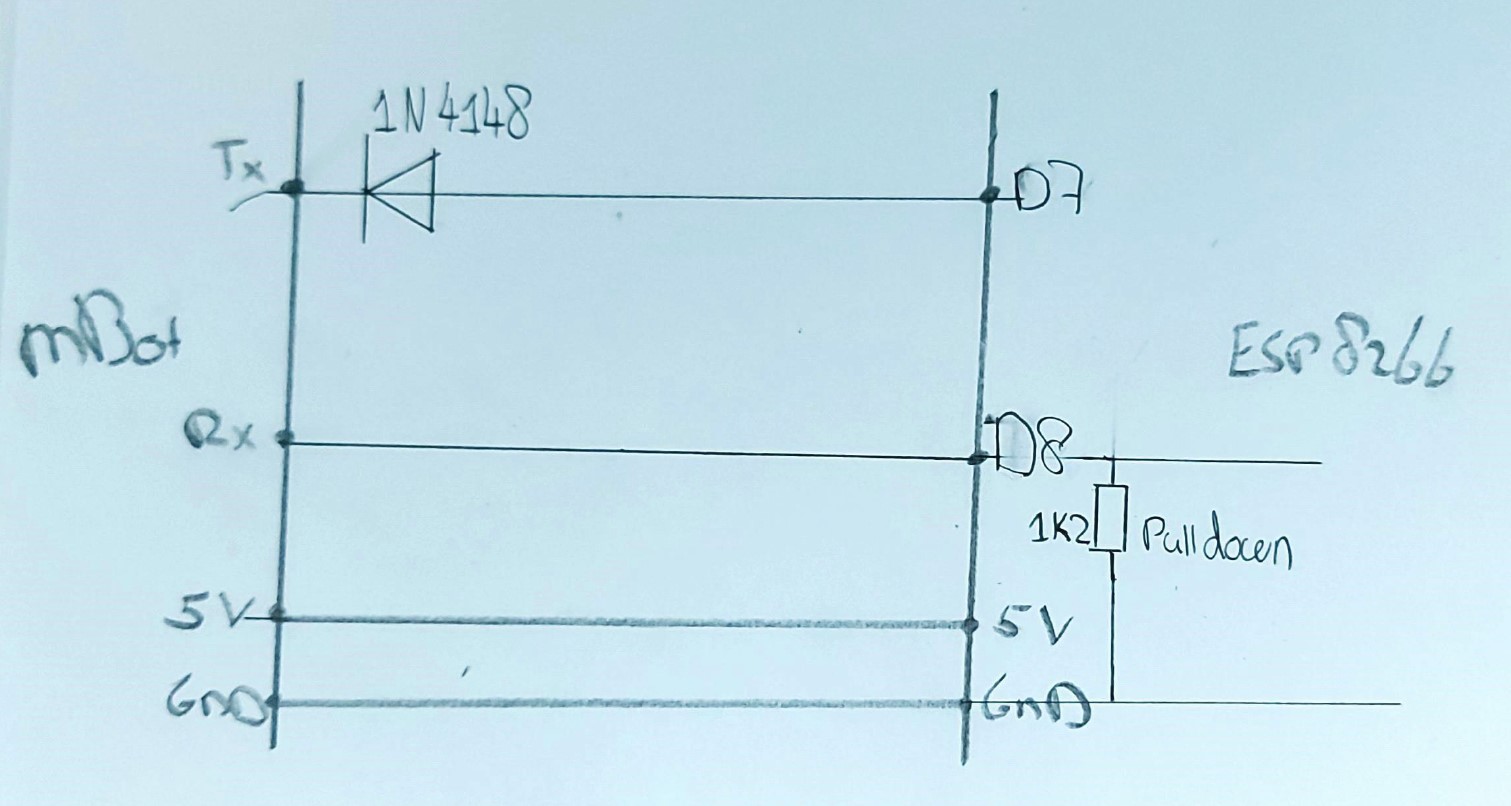 1N4148
Tx
D7
mBot
ESP8266
Rx
D8
1K2
Pulldown
5V
5V
GnD
GnD